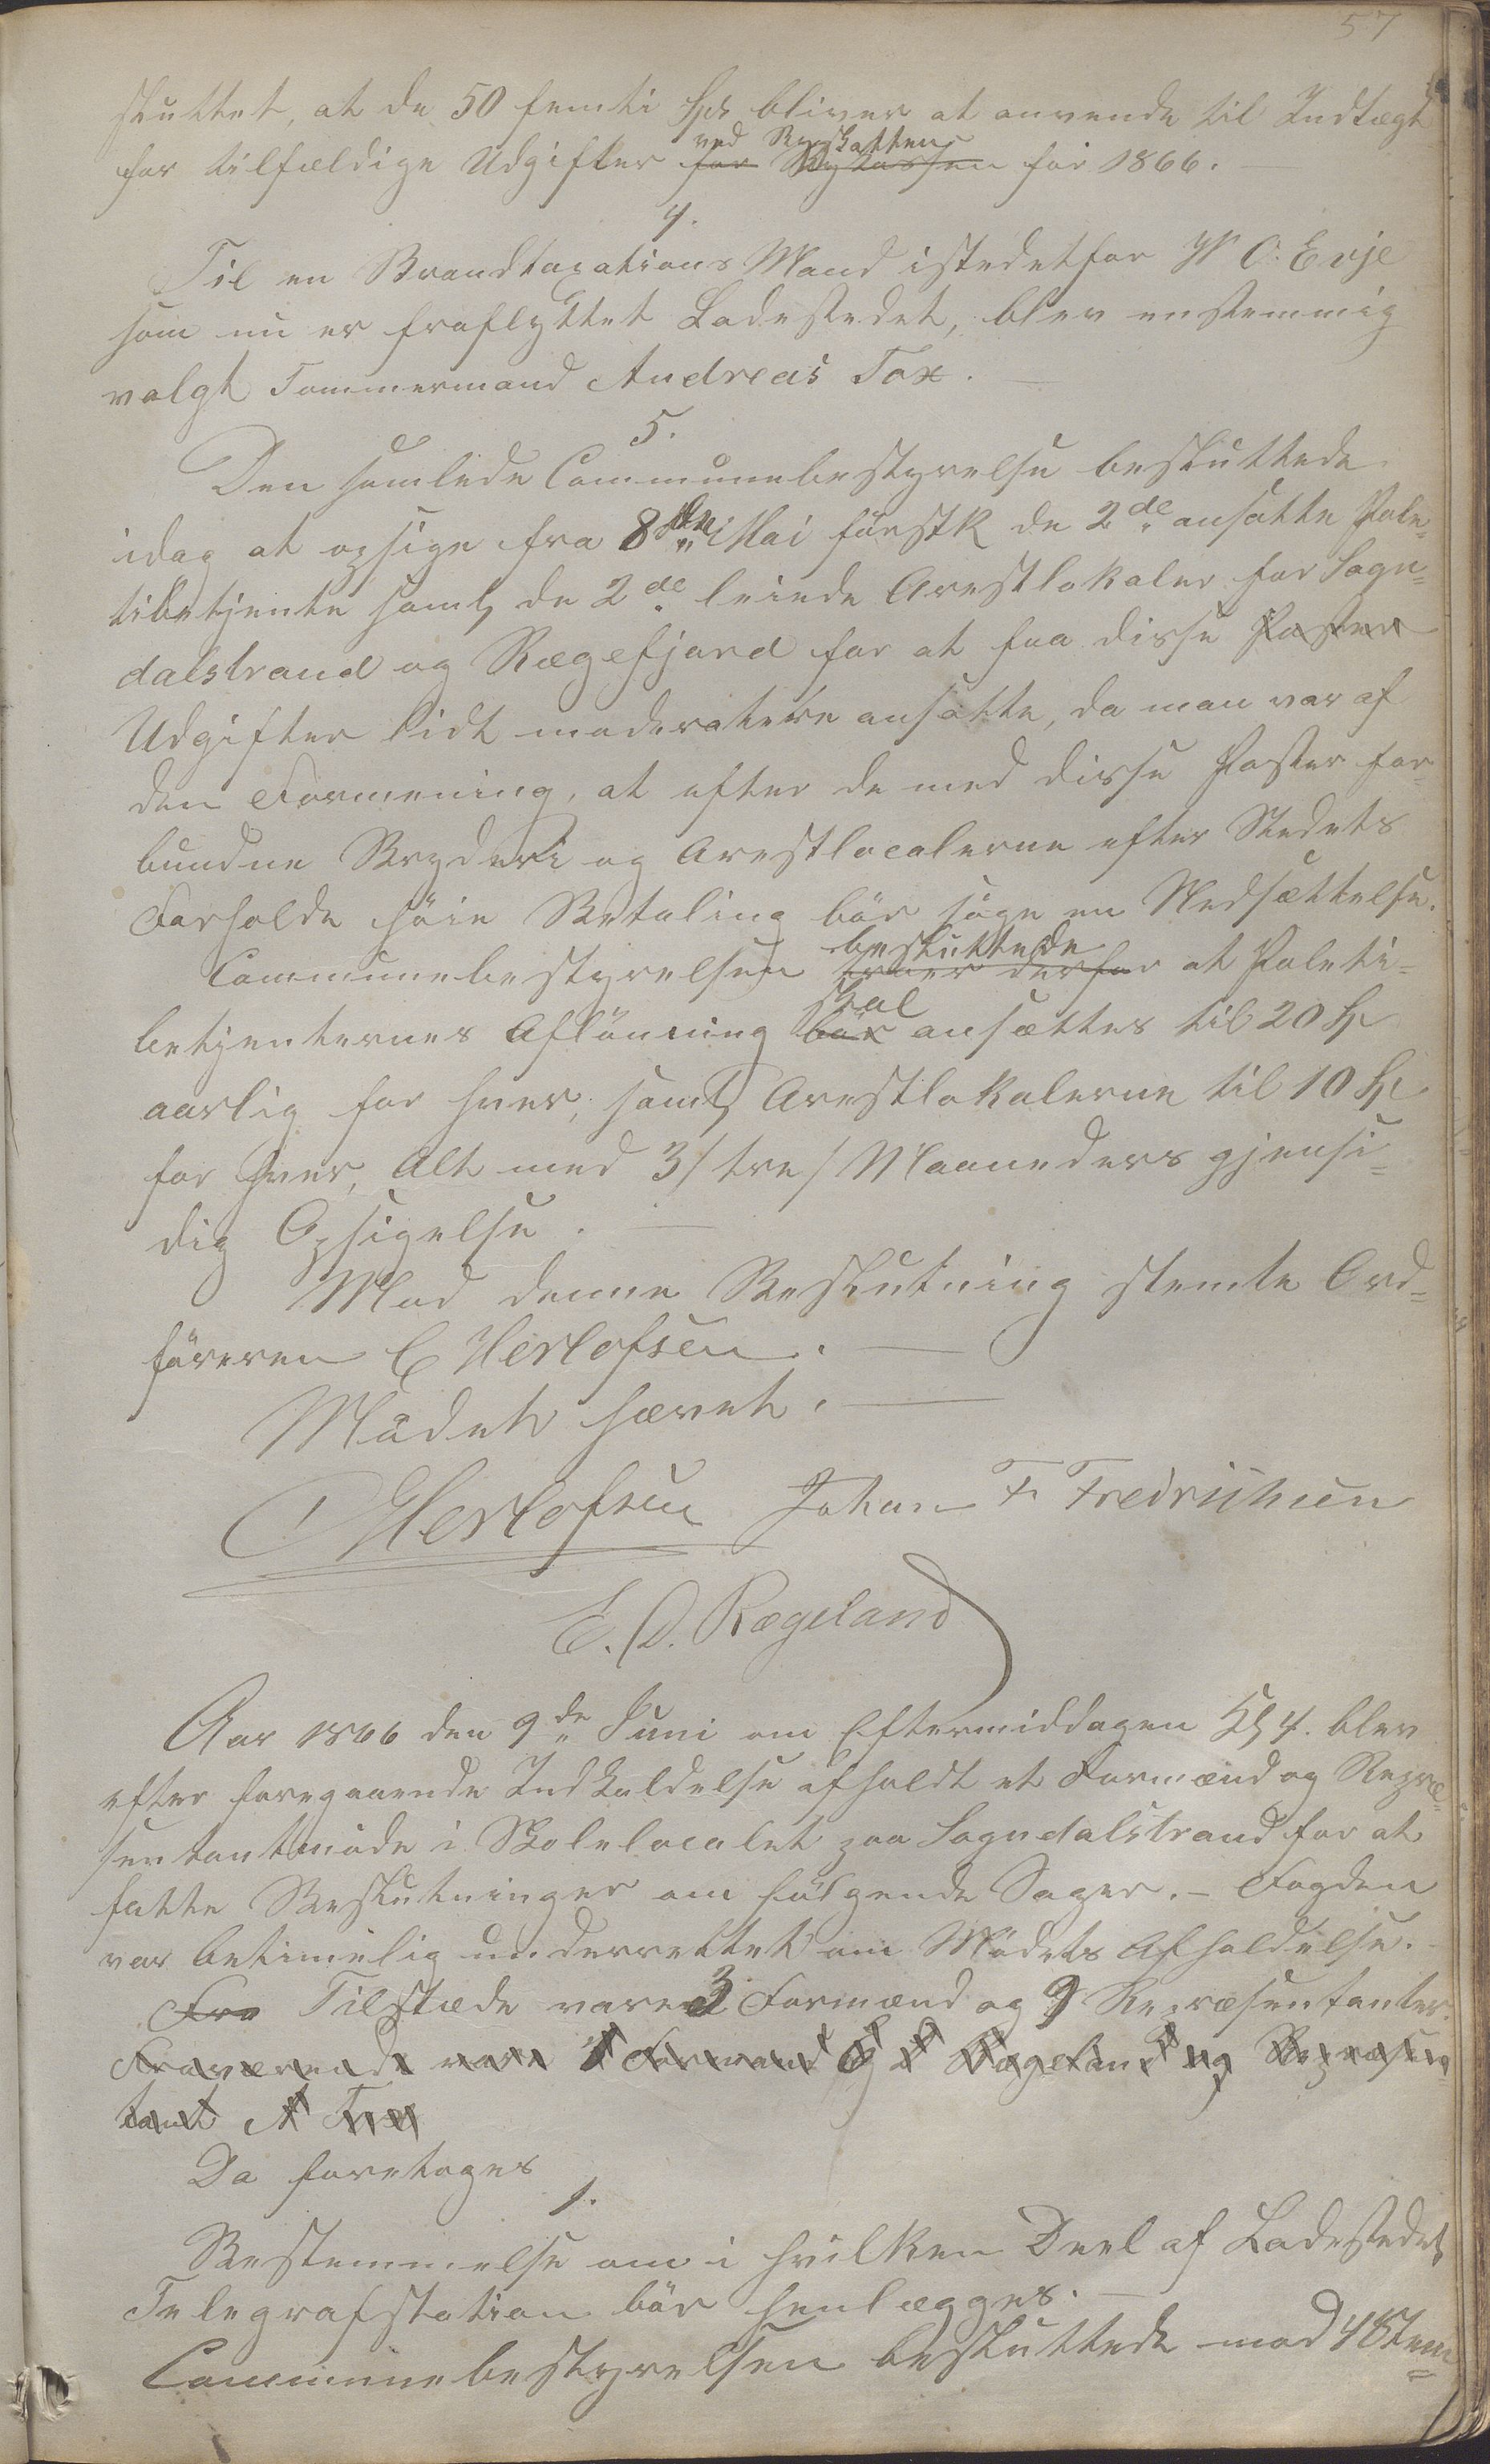 57
sluttet, at de 50 femti Spd bliver at anvende til Indtægt
for tilfældige Udgifter for Bykassen ved Byskatten for 1866.
4.
Til en Brandtaxations Mand istedetfor W C. Evje
som nu er fraflyttet Ladestedet, blev enstemmig
valgt Tømmermand Andreas Tox.
5.
Den samlede Communebestyrelse besluttede
idag at opsige fra 8de Mai førstk de 2de ansatte Poli-
tibetjente samt de 2de leiede Arestlokaler for Sogn=
dalstrand og Rægefjord for at faa disse Poster
Udgifter lidt moderatere ansatte, da man var af
den Formening, at efter de med disse Poster for-
bundne Bryderi og Arestlocalerne efter Stedets
Forholde høie Betaling bør søge en Nedsættelse.
Communebestyrelsen troer derfor besluttede at Politi=
betjenternes Aflønning bør skal ansættes til 20 Sp
aarlig for hver, samt Arestlokalerne til 10 Sp
for hver, Alt med 3/tre/Maaneders gjensi=
dig Opsigelse.
Mod denne Beslutning stemte Ord=
føreren C Herlofsen.
Mødet hævet.
C Herlofsen Johan F Fredriksen
E. D. Rægeland
Aar 1866 den 9de Juni om Eftermiddagen Kl 4. blev
efter foregaaende Indkaldelse afholdt et Formænd og Repræ=
sentantmøde i Skolelocalet paa Sogndalstrand for at
fatte Beslutninger om følgende Sager. – Fogden
var betimelig underrettet om Mødets Afholdelse.
Fra Tilstæde vare 3 Formænd og 9 Repræsentanter.
Fraværende vare 1 Formand E D Rægeland og Repræsen=
tant A Tox
Da foretoges
1.
Bestemmelse om i hvilken Deel af Ladestedet
Telegrafstation bør henlægges.
Communebestyrelsen besluttede mod 4 Stem=